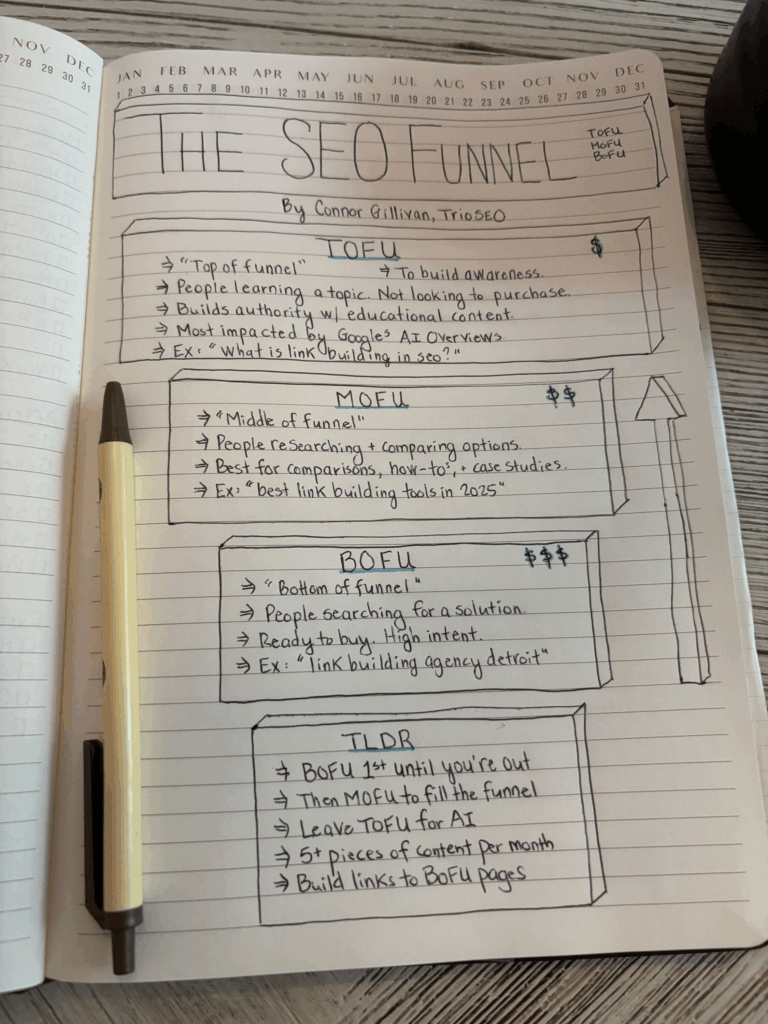 NOV DEC
27 28 29 30 31
JAN FEB MAR APR MAY JUN JUL AUG SEP OCT NOV DEC
1 2 3 4 5 6 7 8 9 10 11 12 13 14 15 16 17 18 19 20 21 22 23 24 25 26 27 28 29 30 31
THE SEO FUNNEL
TOFU
MOFU
BOFU
By Connor Gillivan, TrioSEO
TOFU $
⇒ "Top of funnel" ⇒ To build awareness.
⇒ People learning a topic. Not looking to purchase.
⇒ Builds authority w/ educational content.
⇒ Most impacted by Google's AI Overviews
⇒ Ex: "What is link building in seo?"
MOFU $$
⇒ "Middle of funnel"
⇒ People researching + comparing options.
⇒ Best for comparisons, how-to's, + case studies.
⇒ Ex: "best link building tools in 2025"
BOFU $$$
⇒ "Bottom of funnel"
⇒ People searching for a solution.
⇒ Ready to buy. High intent.
⇒ Ex: "link building agency detroit"
TLDR
⇒ BOFU 1st until you're out
⇒ Then MOFU to fill the funnel
⇒ Leave TOFU for AI
⇒ 5+ pieces of content per month
⇒ Build links to BOFU pages